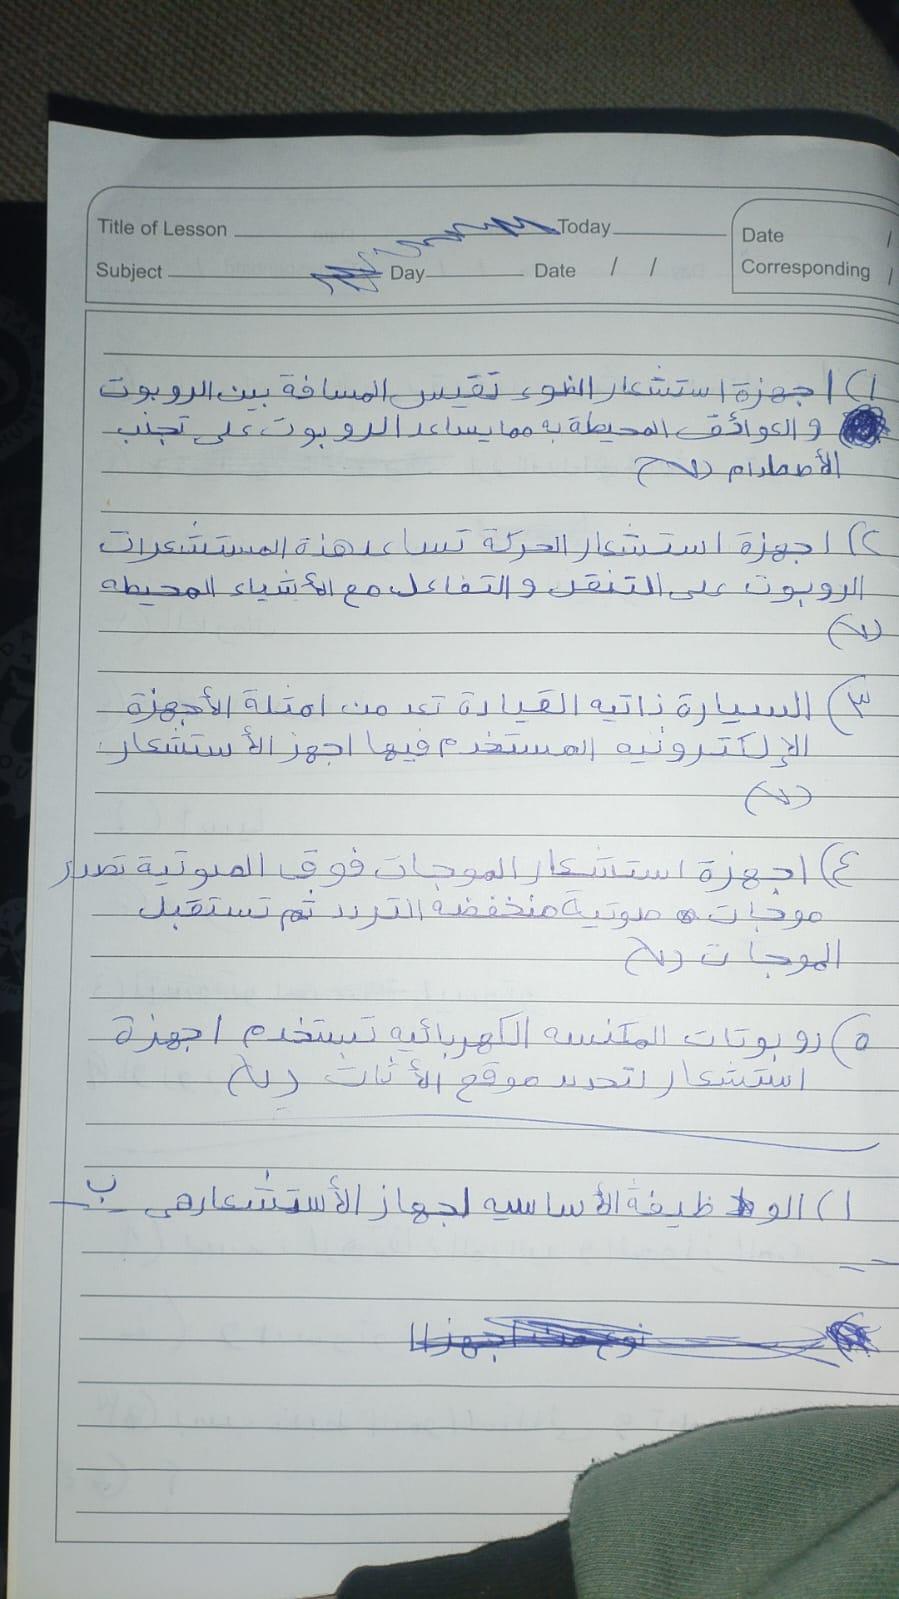 Title of Lesson Today
Date /
Subject Day Date / /
Corresponding /
١) اجهزة استشعار الضوء تقيس المسافة بين الروبوت
و العوائق المحيطة به مما يساعد الروبوت على تجنب
الأصطدام
٢) اجهزة استشعار الحركة تساعد هذة المستشعرات
الروبوت على التنقل والتفاعل مع الأشياء المحيطه
٣) السيارة ذاتيه القيادة تعد من امثلة الأجهزة
الإلكترونيه المستخدم فيها اجهز الأستشعار
٤) اجهزة استشعار الموجات فوق الصوتية تصدر
موجات صوتية منخفضه التردد ثم تستقبل
الموجات
٥) روبوتات المكنسه الكهربائيه تستخدم اجهزة
استشعار لتحديد موقع الأثاث
١) الوظيفة الأساسيه لجهاز الأستشعار هى ب